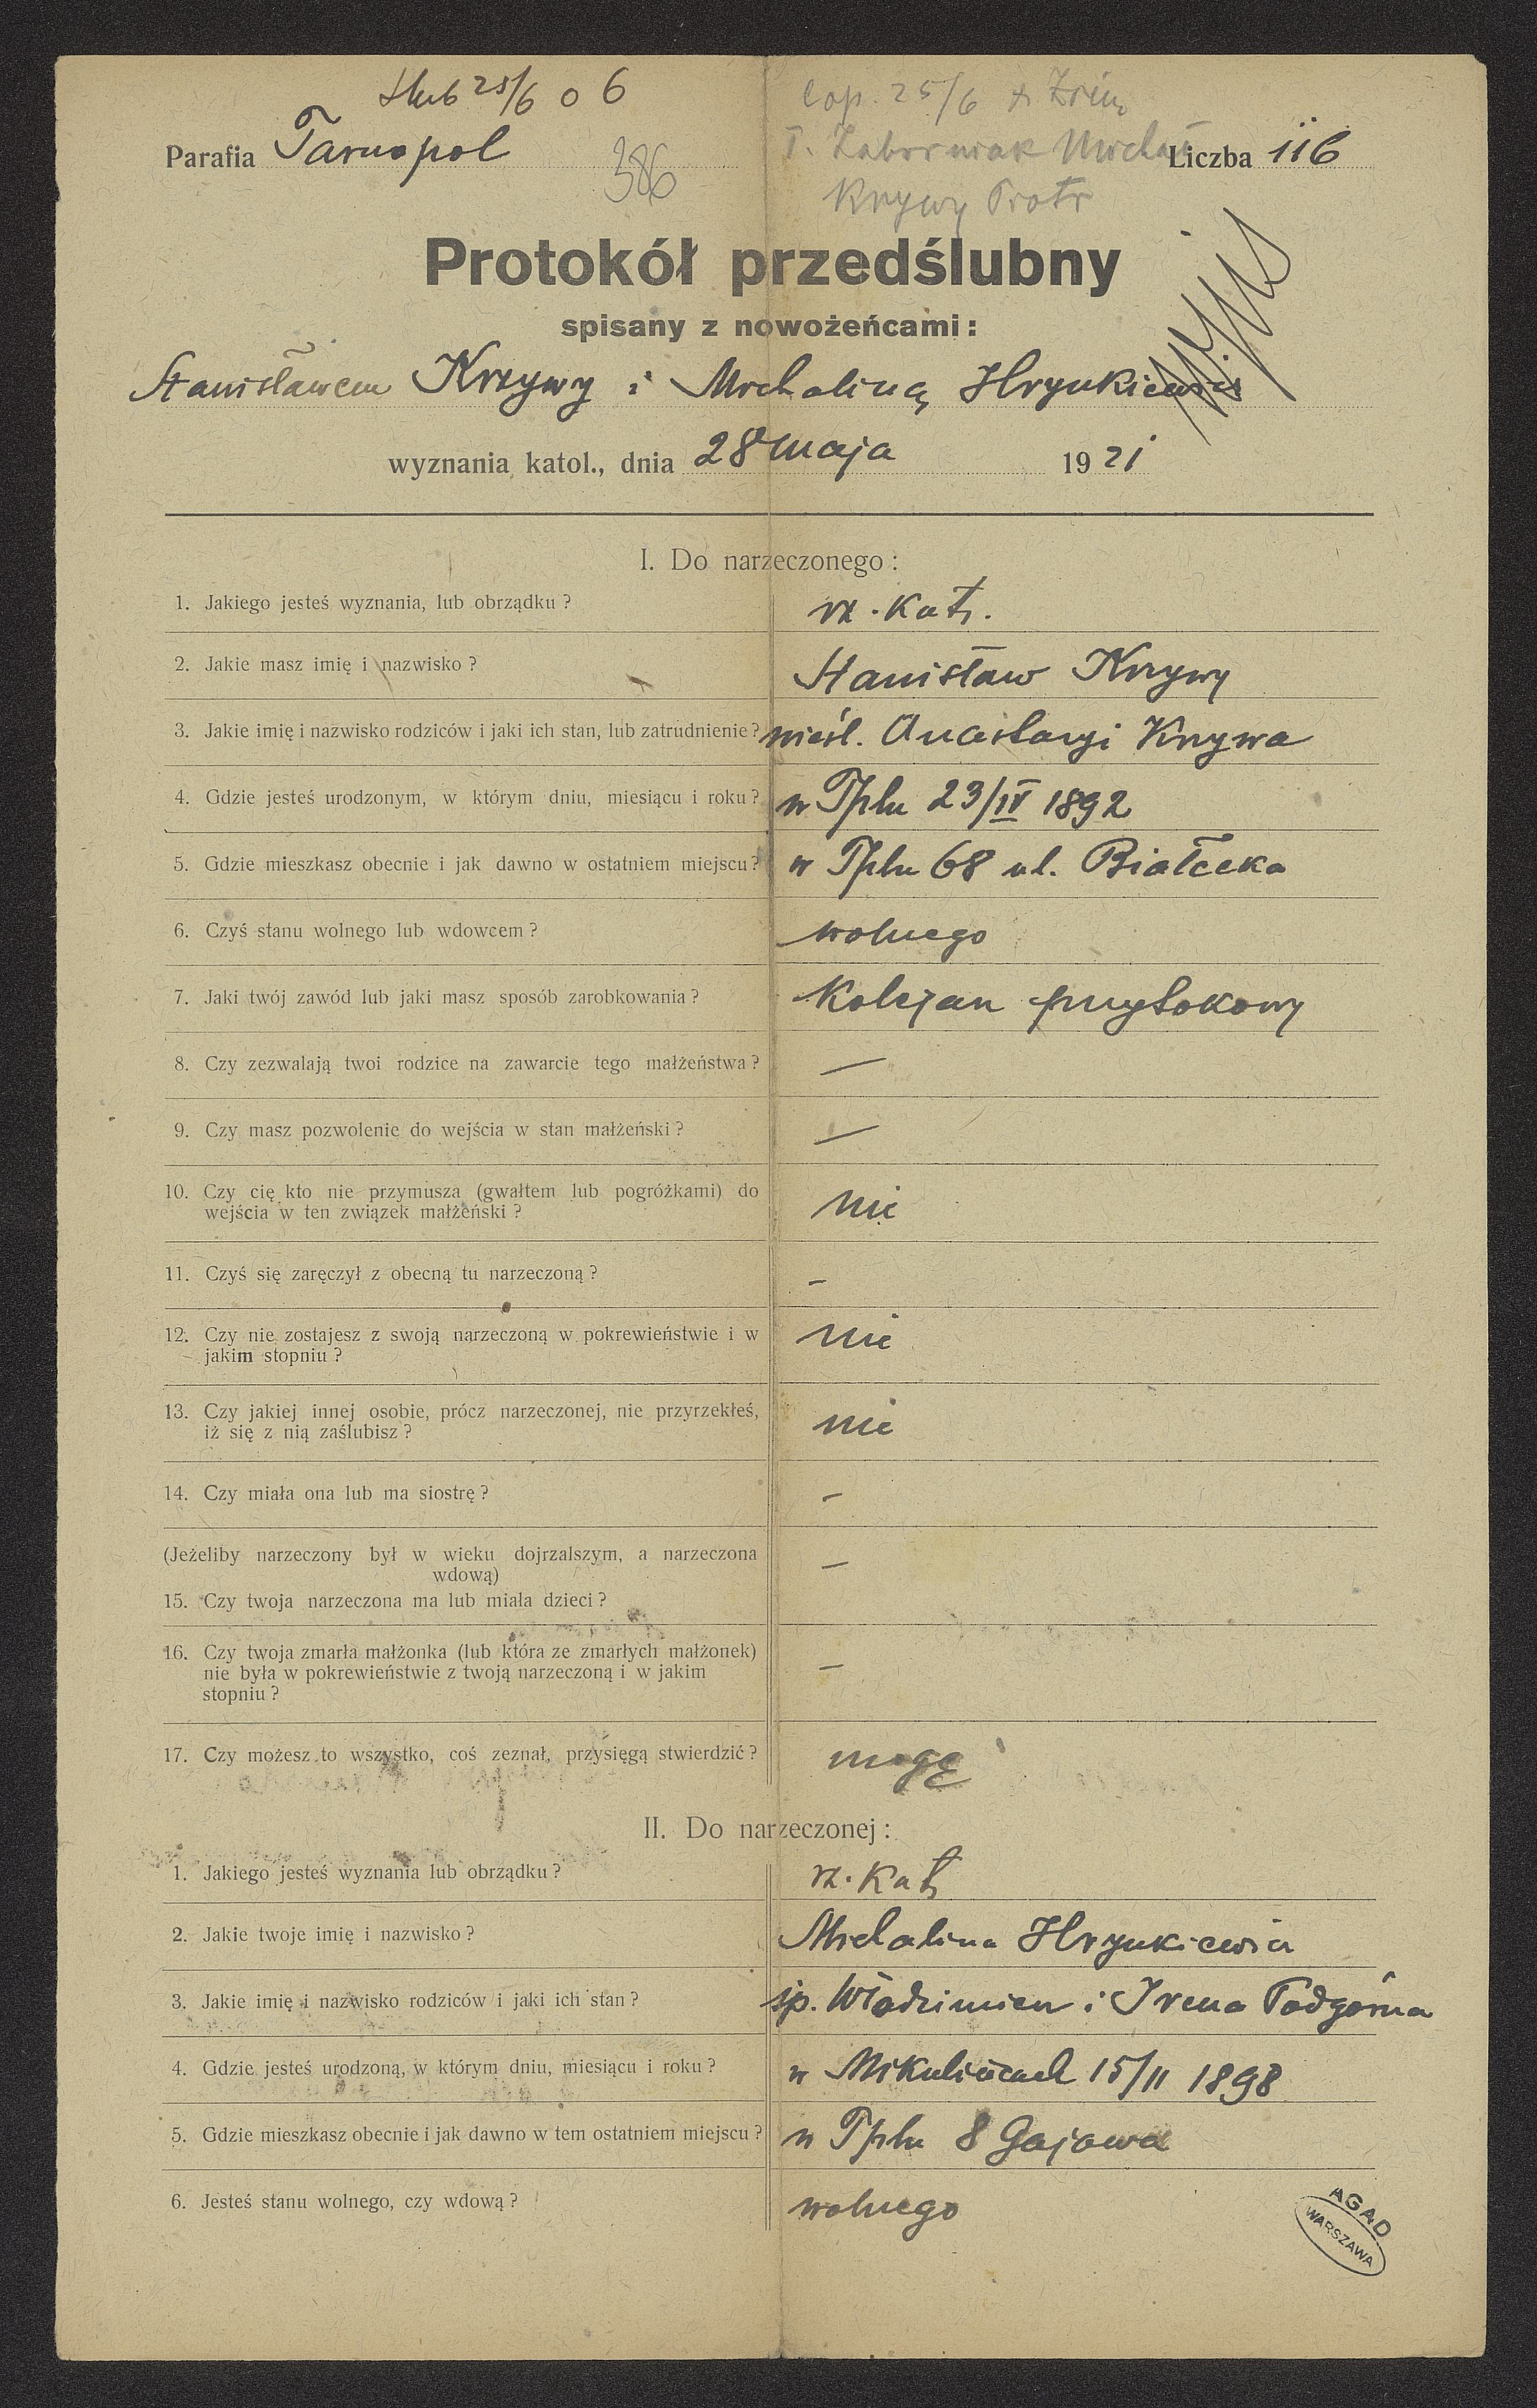 Ślub 25/6 o 6
Cop. 25/6 X
Parafia Tarnopol 386 T. Zaborniak Michał Liczba 116
Krzywy Piotr
Protokół przedślubny
spisany z nowożeńcami:
Stanisławem Krzywy i Michaliną Hrynkiewicz
wyznania katol., dnia 28 maja 1921
I. Do narzeczonego:
1. Jakiego jesteś wyznania, lub obrządku? rz. kat.
2. Jakie masz imię i nazwisko? Stanisław Krzywy
3. Jakie imię i nazwisko rodziców i jaki ich stan, lub zatrudnienie? nieśl. Anastazyi Krzywa
4. Gdzie jesteś urodzonym, w którym dniu, miesiącu i roku? w Tplu 23/IV 1892
5. Gdzie mieszkasz obecnie i jak dawno w ostatniem miejscu? w Tplu 68 ul. Białecka
6. Czyś stanu wolnego lub wdowcem? wolnego
7. Jaki twój zawód lub jaki masz sposób zarobkowania? Kolejarz przytokowy
8. Czy zezwalają twoi rodzice na zawarcie tego małżeństwa? —
9. Czy masz pozwolenie do wejścia w stan małżeński? —
10. Czy cię kto nie przymusza (gwałtem lub pogróżkami) do
wejścia w ten związek małżeński? nie
11. Czyś się zaręczył z obecną tu narzeczoną? –
12. Czy nie zostajesz z swoją narzeczoną w pokrewieństwie i w
jakim stopniu? nie
13. Czy jakiej innej osobie, prócz narzeczonej, nie przyrzekłeś,
iż się z nią zaślubisz? nie
14. Czy miała ona lub ma siostrę? –
(Jeżeliby narzeczony był w wieku dojrzalszym, a narzeczona
wdową) –
15. Czy twoja narzeczona ma lub miała dzieci?
16. Czy twoja zmarła małżonka (lub która ze zmarłych małżonek)
nie była w pokrewieństwie z twoją narzeczoną i w jakim –
stopniu?
17. Czy możesz to wszystko, coś zeznał, przysięgą stwierdzić? mogę
II. Do narzeczonej:
1. Jakiego jesteś wyznania lub obrządku? rz. kat
2. Jakie twoje imię i nazwisko? Michalina Hrynkiewicz
3. Jakie imię i nazwisko rodziców i jaki ich stan? śp. Włodzimierz i Irena Podgórna
4. Gdzie jesteś urodzoną, w którym dniu, miesiącu i roku? w Mikulińcach 15/11 1898
5. Gdzie mieszkasz obecnie i jak dawno w tem ostatniem miejscu? w Tplu 8 Gajowa
6. Jesteś stanu wolnego, czy wdową? wolnego
AGAD
WARSZAWA